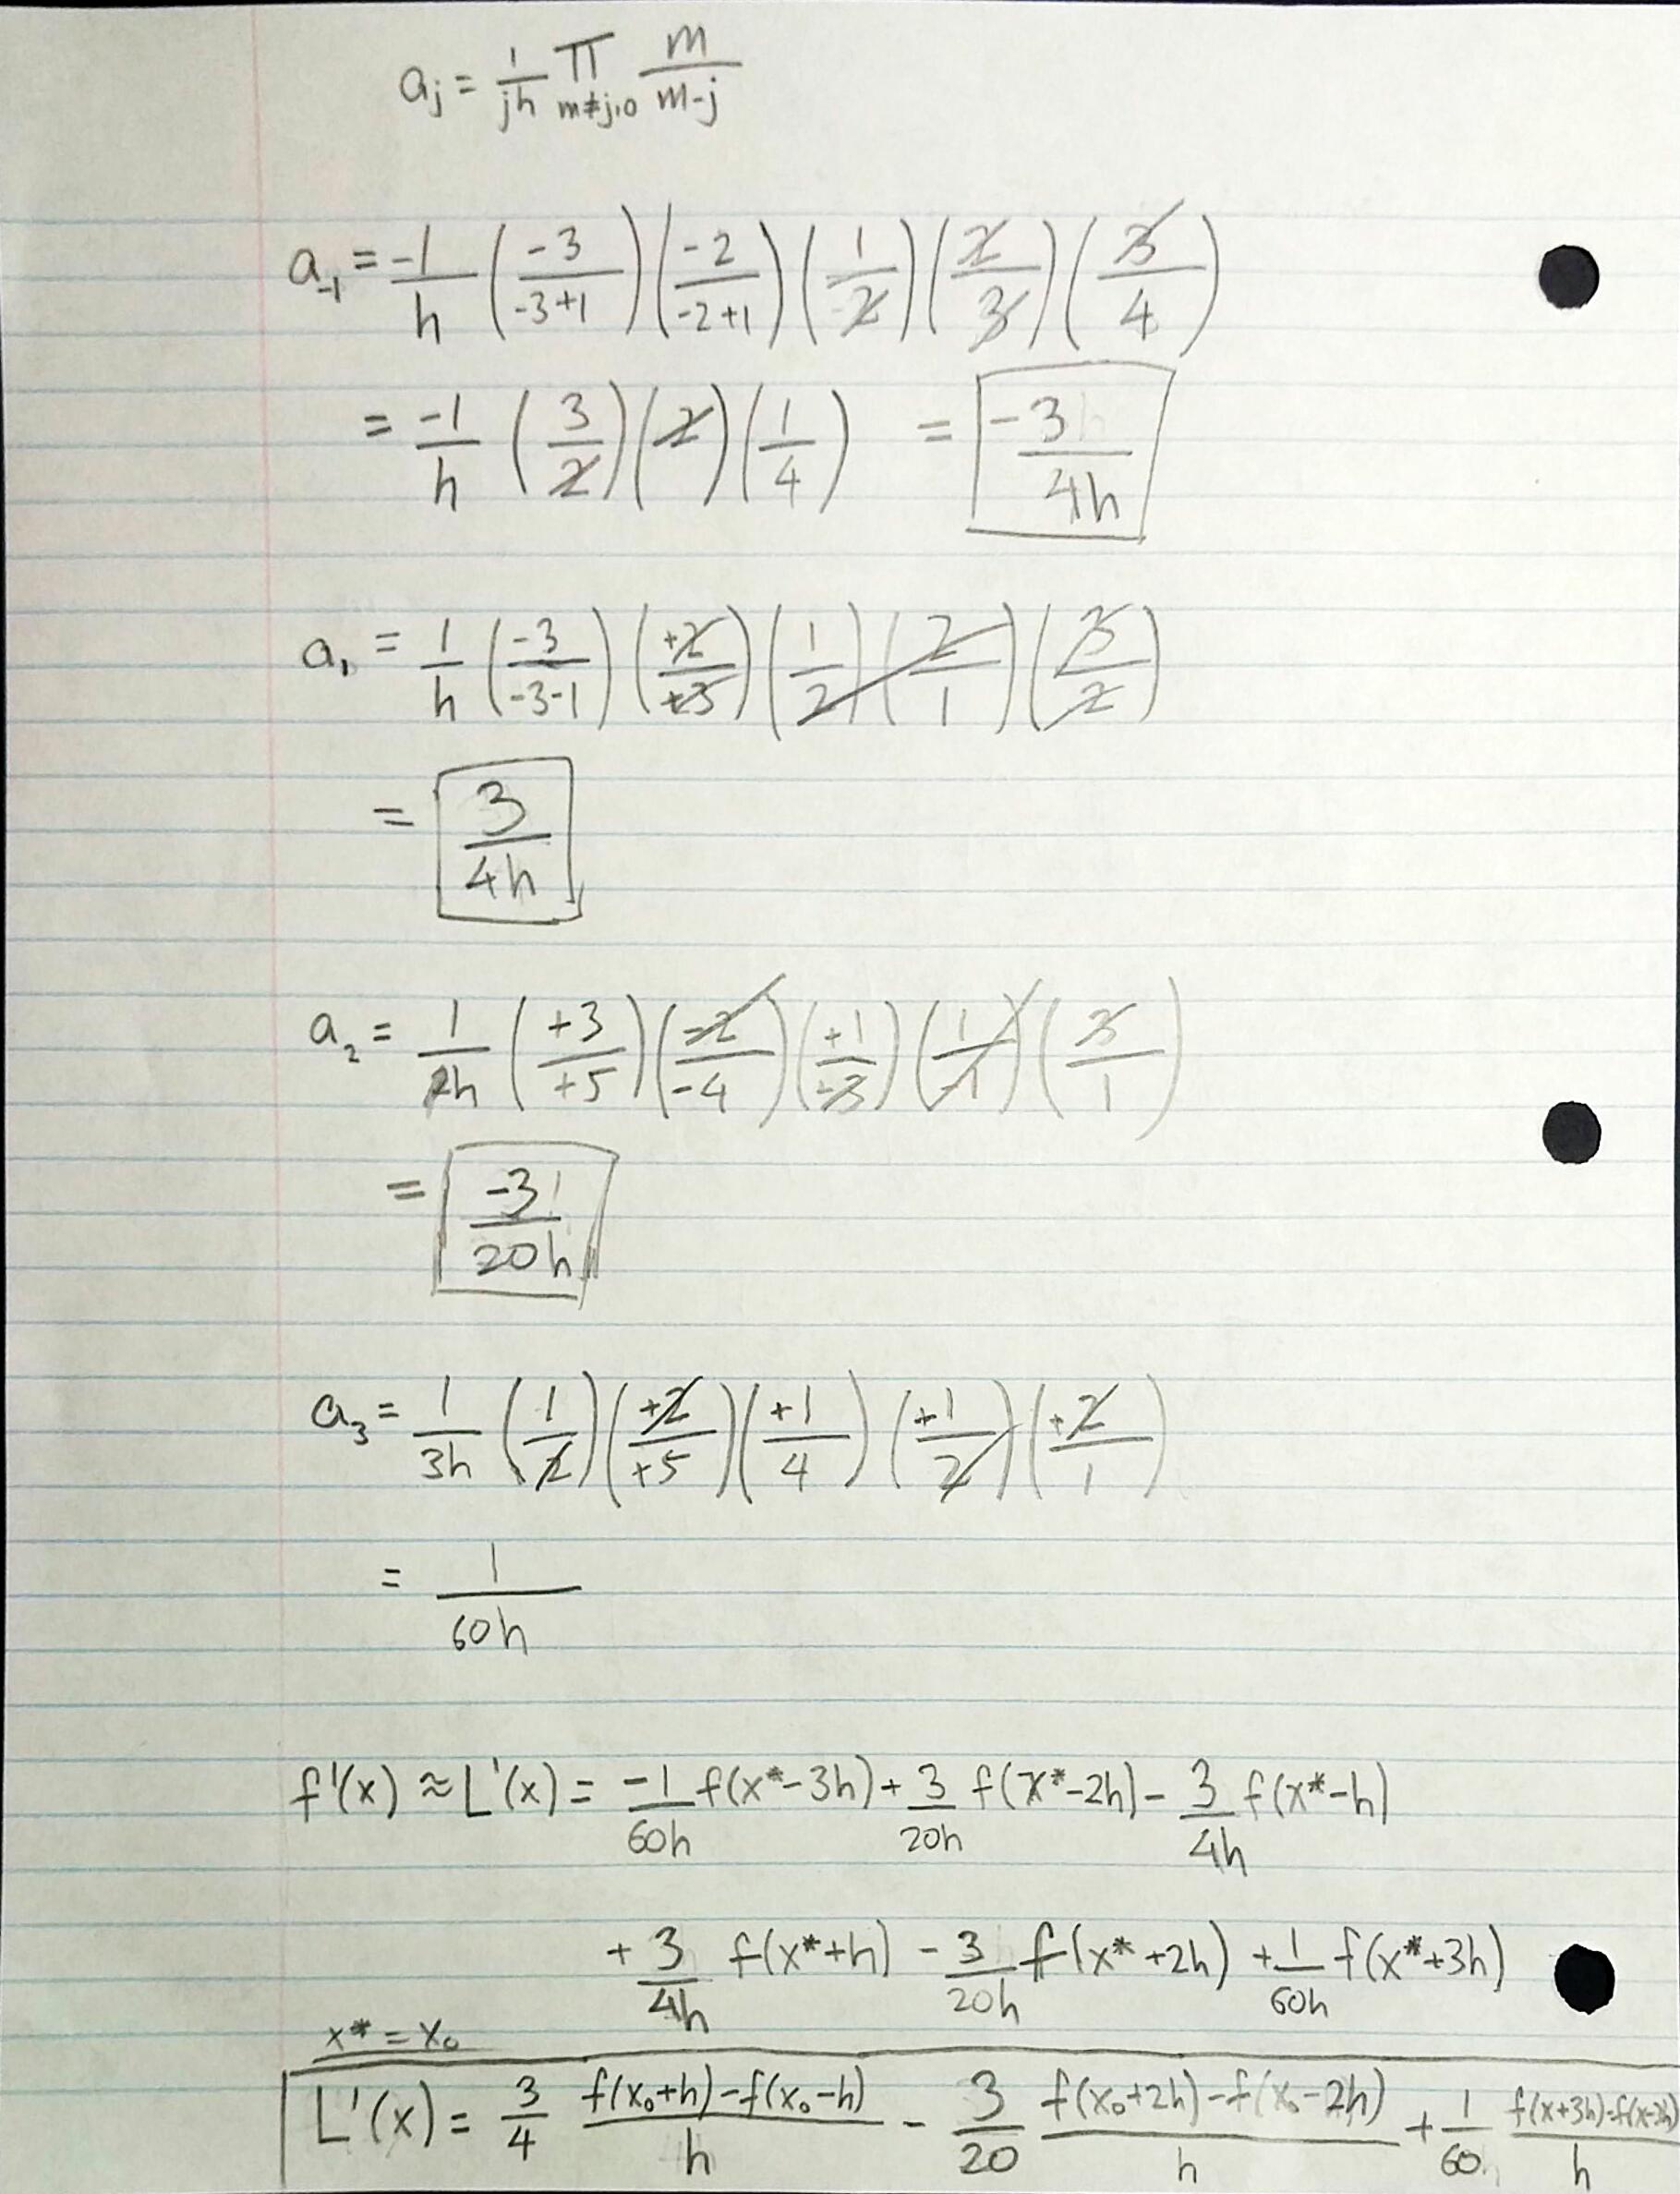 a_j = 1/(jh) ∏_{m≠j,0} m/(m-j)
a_{-1} = -1/h (-3/(-3+1)) (-2/(-2+1)) (1/2) (2/3) (3/4)
= -1/h (3/2) (2) (1/4) = -3/(4h)
a_1 = 1/h (-3/(-3-1)) (+2/+3) (1/2) (2/1) (3/2)
= 3/(4h)
a_2 = 1/(2h) (+3/+5) (-2/-4) (+1/+3) (1/-1) (3/1)
= -3/(20h)
a_3 = 1/(3h) (1/2) (+2/+5) (+1/4) (+1/2) (+2/1)
= 1/(60h)
f'(x) ≈ L'(x) = -1/(60h) f(x*-3h) + 3/(20h) f(x*-2h) - 3/(4h) f(x*-h)
+ 3/(4h) f(x*+h) - 3/(20h) f(x*+2h) + 1/(60h) f(x*+3h)
x* = x_0
L'(x) = 3/4 (f(x_0+h)-f(x_0-h))/h - 3/20 (f(x_0+2h)-f(x_0-2h))/h + 1/60 (f(x+3h)-f(x-3h))/h